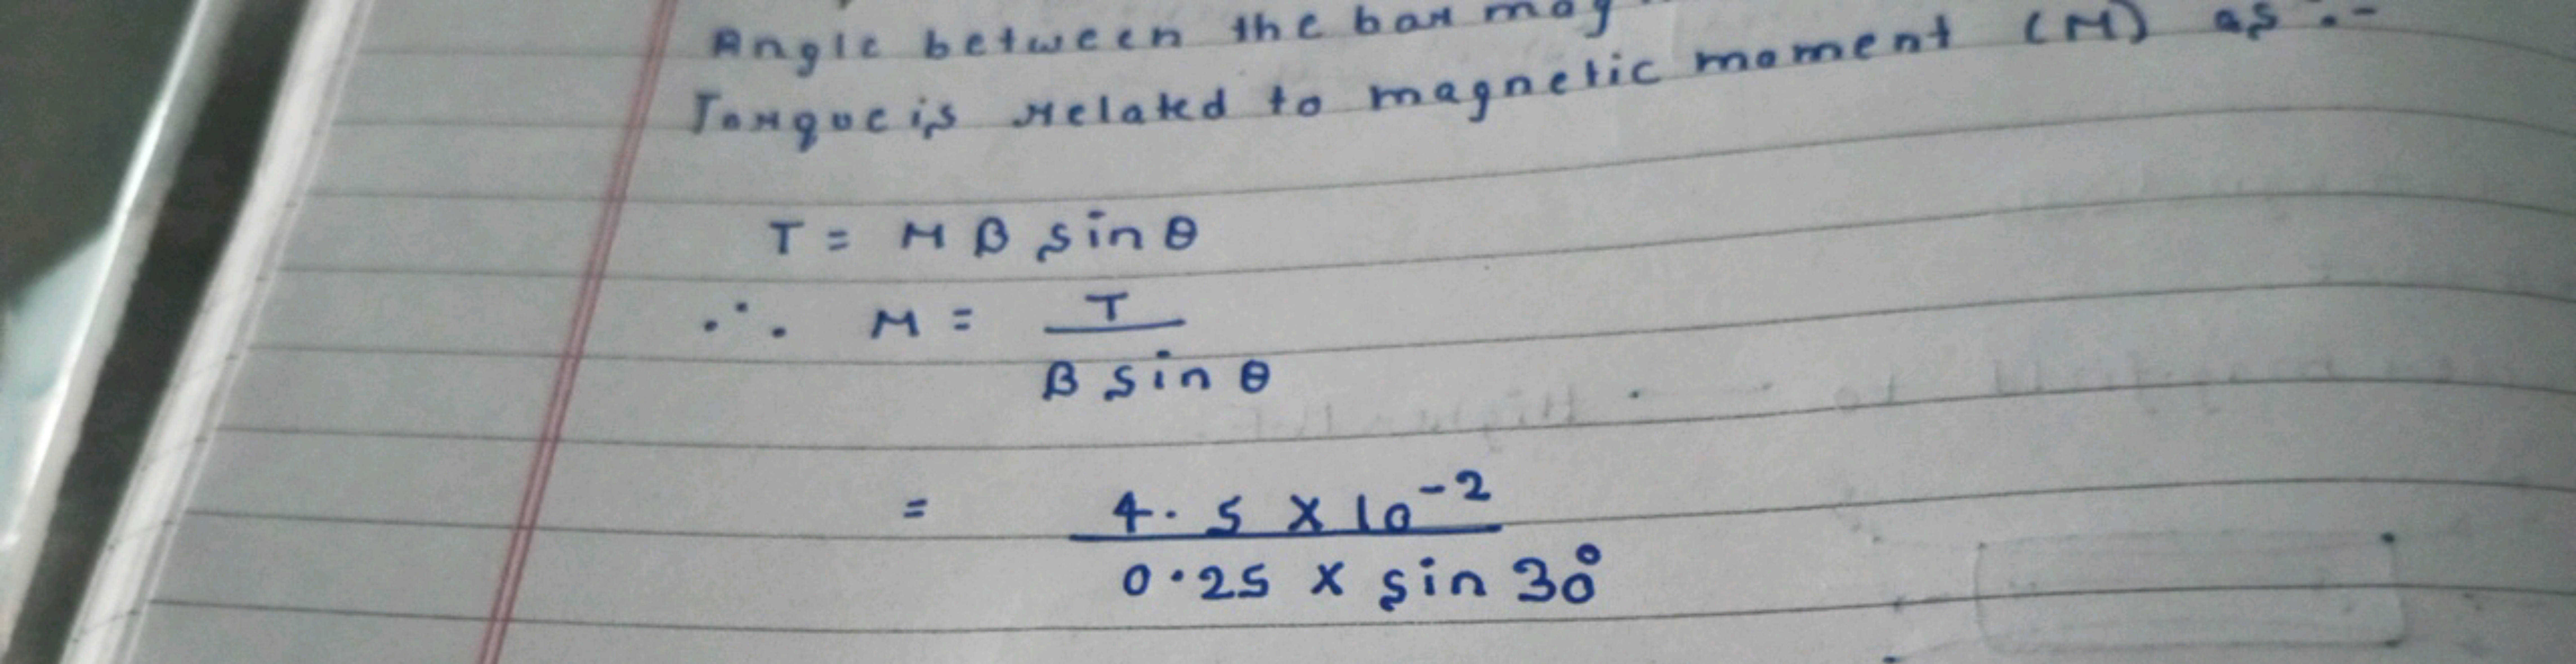 Angle between the bar mag
Torque is related to magnetic moment (M) as :-
T = M B sin θ
∴ M = T / B sin θ
= 4.5 × 10⁻² / 0.25 × sin 30°